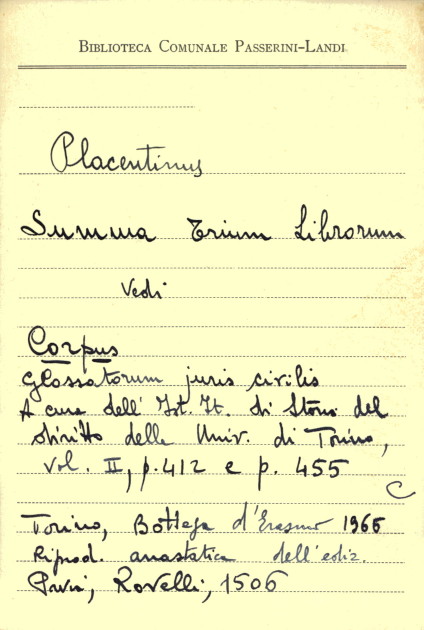 BIBLIOTECA COMUNALE PASSERINI-LANDI
Placentinus
Summa Trium Librorum
Vedi
Corpus
Glossatorum juris civilis
A cura dell' Ist. It. di Storia del
diritto della Univ. di Torino,
vol. II, p. 412 e p. 455
C
Torino, Bottega d'Erasmo 1966
Riprod. anastatica dell'ediz.
Rovelli, 1506